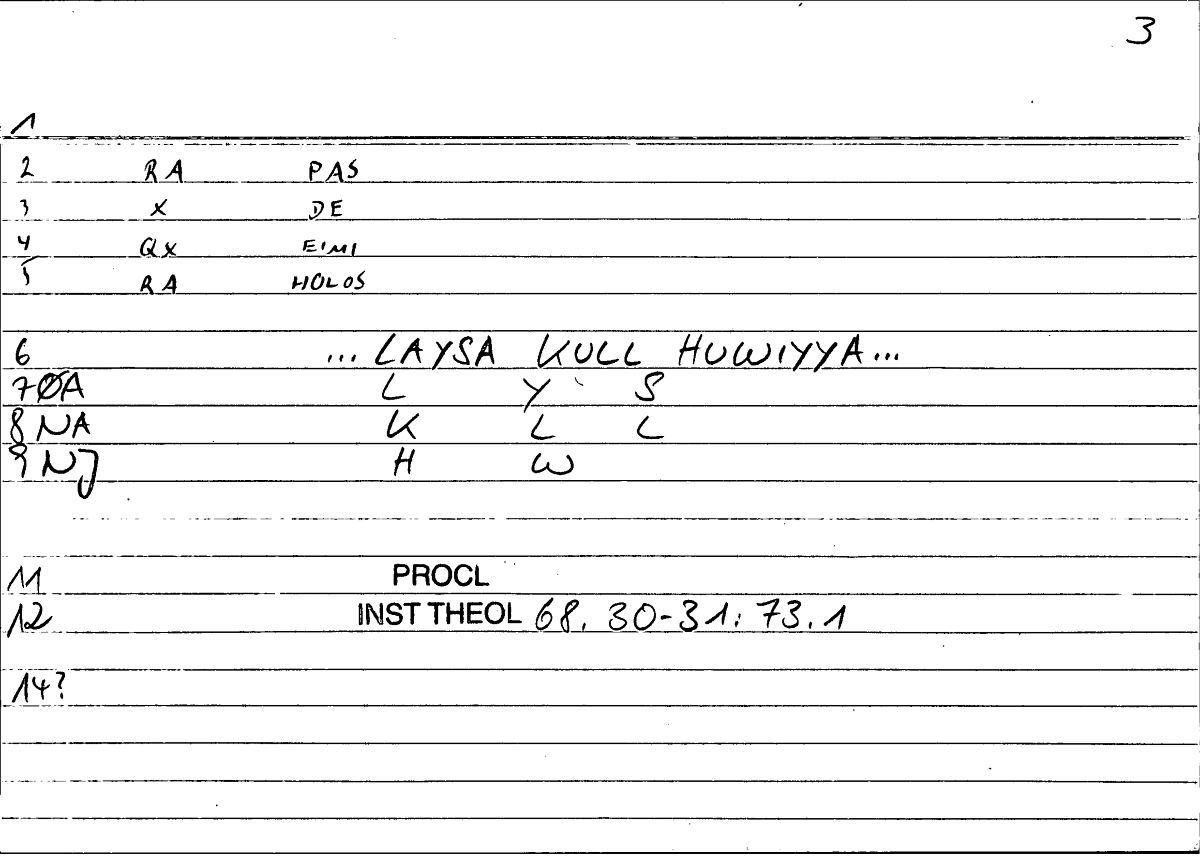 3
1
2 RA PAS
3 X DE
4 QX EIMI
5 RA HOLOS
6 ... LAYSA KULL HUWIYYA...
7 ØA L Y S
8 NA K L L
9 NJ H W
11 PROCL
12 INST THEOL 68. 30-31: 73.1
14?